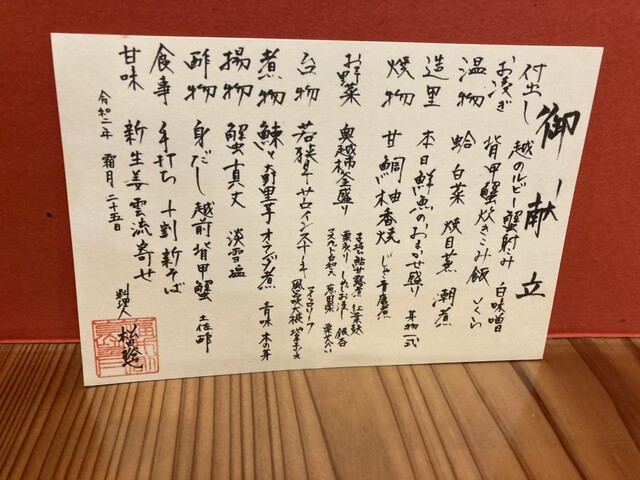 御献立
付出し 越のルビー蟹射込み 白味噌
お凌ぎ 背甲蟹炊きこみ飯 いくら
温物 蛤 白菜 焼目葱 潮煮
造里 本日鮮魚のおまかせ盛り 妻物一式
焼物 甘鯛 柚木香焼 じゃこ青唐煮
お野菜 奥越柿釜盛り
子持ち鮎甘露煮 紅葉麩
銀杏
台物 若狭牛サーロインステーキ
煮物 鰊と大野里芋オランダ煮 青味 木の芽
揚物 蟹真丈 淡雪塩
酢物 身だし越前背甲蟹 土佐酢
食事 手打ち 十割新そば
甘味 新生姜雲流寄せ
令和二年 霜月 二十五日
料理人